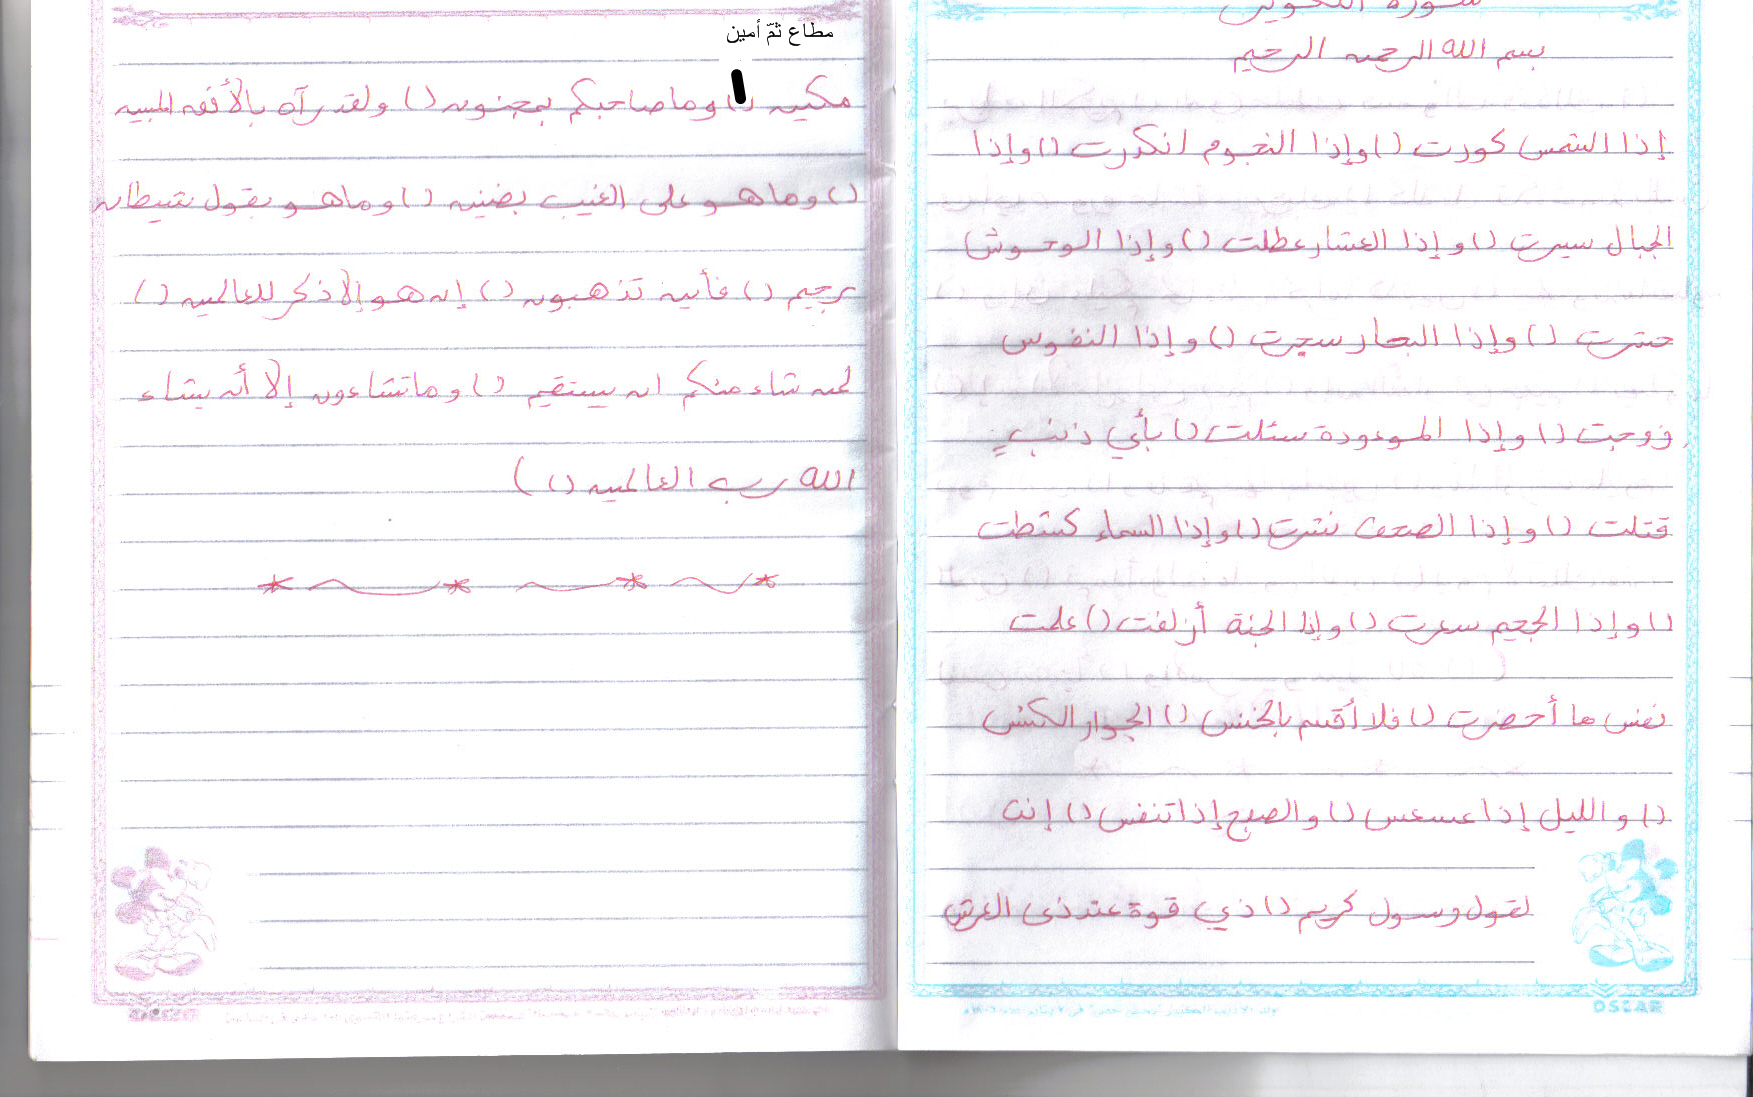 سورة التكوير
بسم الله الرحمن الرحيم
إذا الشمس كورت () وإذا النجوم انكدرت () وإذا
الجبال سيرت () وإذا العشار عطلت () وإذا الوحوش
حشرت () وإذا البحار سجرت () وإذا النفوس
زوجت () وإذا الموءودة سئلت () بأي ذنبٍ
قتلت () وإذا الصحف نشرت () وإذا السماء كشطت
() وإذا الجحيم سعرت () وإذا الجنة أزلفت () علمت
نفس ما أحضرت () فلا أقسم بالخنس () الجوار الكنس
() والليل إذا عسعس () والصبح إذا تنفس () إنه
لقول رسول كريم () ذي قوة عند ذي العرش
OSCAR
مطاع ثمّ أمين
مكين () وما صاحبكم بمجنون () ولقد رآه بالأفق المبين
() وما هو على الغيب بضنين () وما هو بقول شيطان
رجيم () فأين تذهبون () إن هو إلا ذكر للعالمين ()
لمن شاء منكم ان يستقيم () وما تشاءون إلا أن يشاء
الله رب العالمين () )
OSCAR